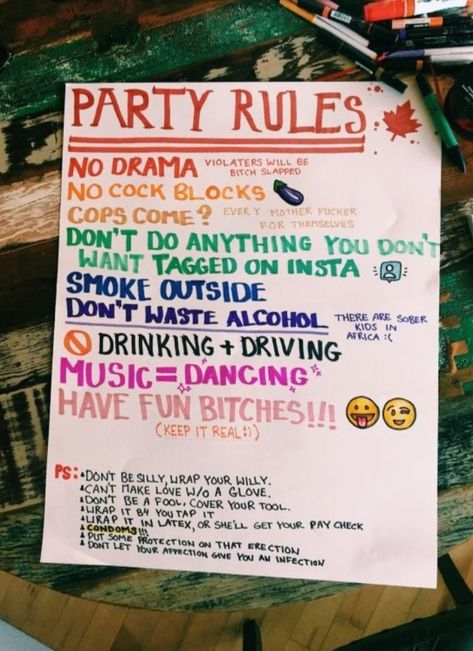 PARTY RULES
NO DRAMA VIOLATERS WILL BE
BITCH SLAPPED
NO COCK BLOCKS
COPS COME? EVERY MOTHER FUCKER
FOR THEMSELVES
DON'T DO ANYTHING YOU DON'T
WANT TAGGED ON INSTA
SMOKE OUTSIDE
DON'T WASTE ALCOHOL THERE ARE SOBER
KIDS IN
AFRICA :(
DRINKING + DRIVING
MUSIC = DANCING
HAVE FUN BITCHES!!!
(KEEP IT REAL :))
PS: DON'T BE SILLY, WRAP YOUR WILLY.
CAN'T MAKE LOVE W/O A GLOVE.
DON'T BE A FOOL, COVER YOUR TOOL.
WRAP IT B4 YOU TAP IT
WRAP IT IN LATEX, OR SHE'LL GET YOUR PAY CHECK
CONDOMS!!!
PUT SOME PROTECTION ON THAT ERECTION
DON'T LET YOUR AFFECTION GIVE YOU AN INFECTION